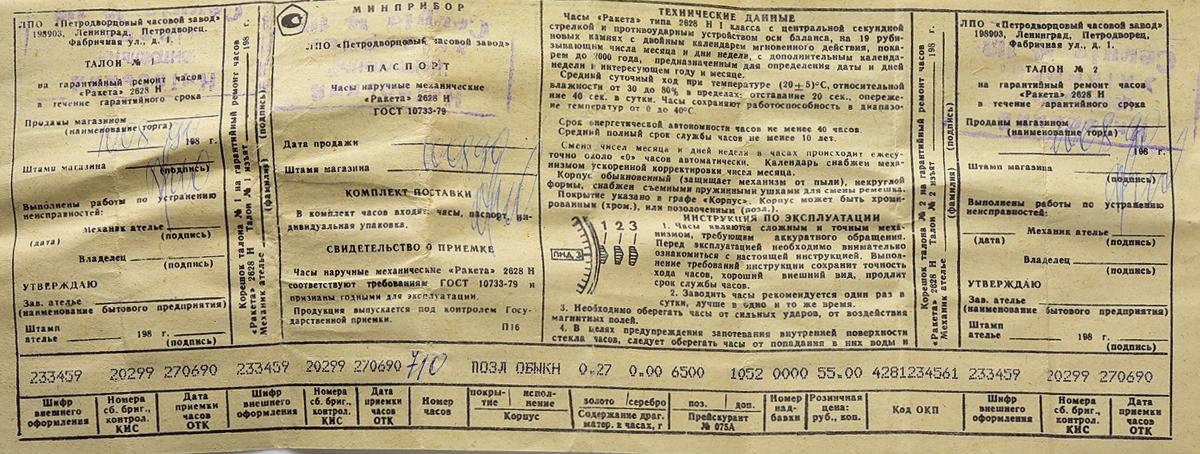 ЛПО «Петродворцовый часовой завод»
198903, Ленинград, Петродворец,
Фабричная ул., д. 1.
ТАЛОН № 1
на гарантийный ремонт часов
«Ракета» 2628 Н
в течение гарантийного срока
Проданы магазином
(наименование торга)
198 г.
Штамп магазина
(подпись)
Выполнены работы по устранению
неисправностей:
Механик ателье
(дата) (подпись)
Владелец
(подпись)
УТВЕРЖДАЮ
Зав. ателье
(наименование бытового предприятия)
Штамп
ателье 198 г.
(подпись)
Корешок талона № 1 на гарантийный ремонт часов
«Ракета» 2628 Н Талон № 1 изъят 198 г.
Механик ателье (фамилия) (подпись)
МИНПРИБОР
ЛПО «Петродворцовый часовой завод»
ПАСПОРТ
Часы наручные механические
«Ракета» 2628 Н
ГОСТ 10733-79
Дата продажи
Штамп магазина
КОМПЛЕКТ ПОСТАВКИ
В комплект часов входят: часы, паспорт, ин-
дивидуальная упаковка.
СВИДЕТЕЛЬСТВО О ПРИЕМКЕ
Часы наручные механические «Ракета» 2628 Н
соответствуют требованиям ГОСТ 10733-79 и
признаны годными для эксплуатации.
Продукция выпускается под контролем Госу-
дарственной приемки.
П16
ТЕХНИЧЕСКИЕ ДАННЫЕ
Часы «Ракета» типа 2628 Н 1 класса с центральной секундной
стрелкой и противоударным устройством оси баланса, на 19 руби-
новых камнях с двойным календарем мгновенного действия, пока-
зывающим числа месяца и дни недели, с дополнительным календа-
рем до 2000 года, предназначенным для определения даты и дней
недели в интересующем году и месяце.
Средний суточный ход при температуре (20±5)°С, относительной
влажности от 30 до 80% в пределах: отставание 20 сек., опереже-
ние 40 сек. в сутки. Часы сохраняют работоспособность в диапазо-
не температур от 0 до 40°С.
Срок энергетической автономности часов не менее 40 часов.
Средний полный срок службы часов не менее 10 лет.
Смена чисел месяца и дней недели в часах происходит ежесу-
точно около «0» часов автоматически. Календарь снабжен меха-
низмом ускоренной корректировки чисел месяца.
Корпус обыкновенный (защищает механизм от пыли), некруглой
формы, снабжен съемными пружинными ушками для смены ремешка.
Покрытие указано в графе «Корпус». Корпус может быть хроми-
рованным (хром.), или позолоченным (позл.).
ИНСТРУКЦИЯ ПО ЭКСПЛУАТАЦИИ
1 2 3
ПНД 3
1. Часы являются сложным и точным меха-
низмом, требующим аккуратного обращения.
Перед эксплуатацией необходимо внимательно
ознакомиться с настоящей инструкцией. Выпол-
нение требований инструкции сохранит точность
хода часов, хороший внешний вид, продлит
срок службы часов.
2. Заводить часы рекомендуется один раз в
сутки, лучше в одно и то же время.
3. Необходимо оберегать часы от сильных ударов, от воздействия
магнитных полей.
4. В целях предупреждения запотевания внутренней поверхности
стекла часов, следует оберегать часы от попадания в них воды и
Корешок талона № 2 на гарантийный ремонт часов
«Ракета» 2628 Н Талон № 2 изъят 198 г.
Механик ателье (фамилия) (подпись)
ЛПО «Петродворцовый часовой завод»
198903, Ленинград, Петродворец,
Фабричная ул., д. 1.
ТАЛОН № 2
на гарантийный ремонт часов
«Ракета» 2628 Н
в течение гарантийного срока
Проданы магазином
(наименование торга)
198 г.
Штамп магазина
(подпись)
Выполнены работы по устранению
неисправностей:
Механик ателье
(дата) (подпись)
Владелец
(подпись)
УТВЕРЖДАЮ
Зав. ателье
(наименование бытового предприятия)
Штамп
ателье 198 г.
(подпись)
233459 20299 270690 233459 20299 270690 710 ПОЗЛ ОБЫКН 0.27 0.00 6500 1052 0000 55.00 4281234561 233459 20299 270690
Шифр внешнего оформления
Номера сб. бриг., контрол. КИС
Дата приемки часов ОТК
Шифр внешнего оформления
Номера сб. бриг., контрол. КИС
Дата приемки часов ОТК
Номер часов
покры-тие испол-нение
Корпус
золото серебро
Содержание драг. матер. в часах, г
поз. доп.
Прейскурант № 075А
Номер над-бавки
Розничная цена: руб., коп.
Код ОКП
Шифр внешнего оформления
Номера сб. бриг., контрол. КИС
Дата приемки часов ОТК